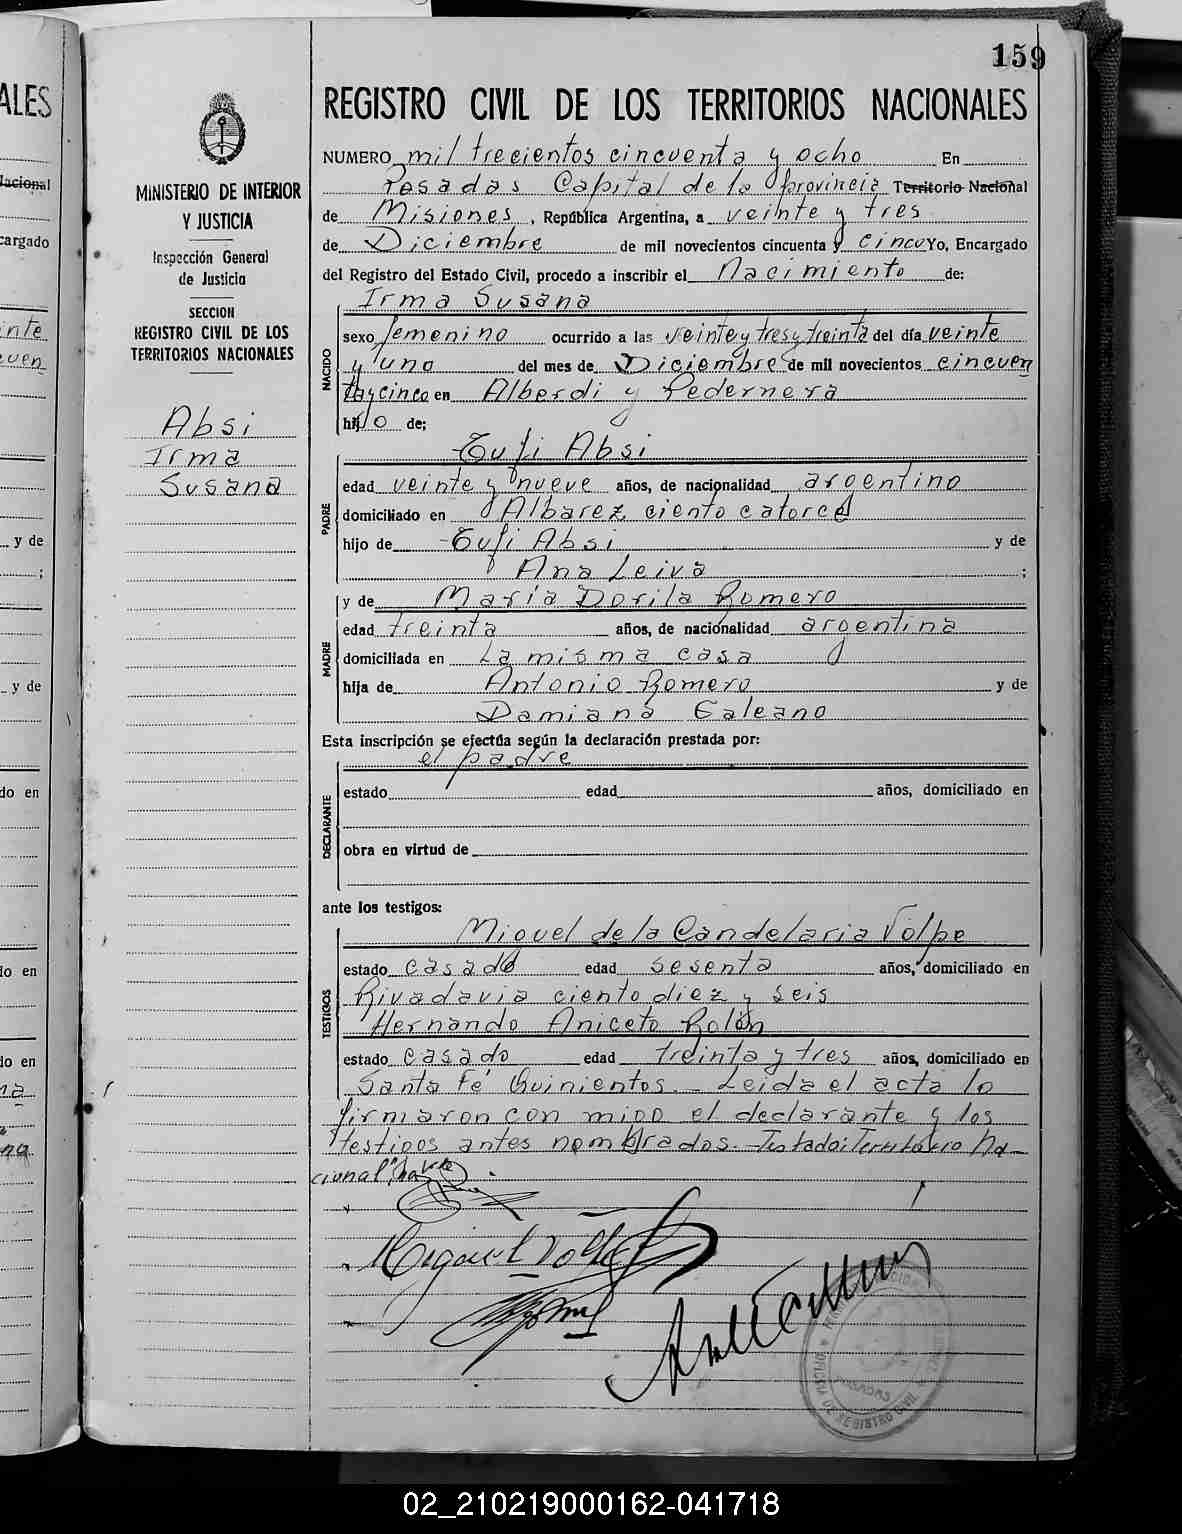 159
REGISTRO CIVIL DE LOS TERRITORIOS NACIONALES
MINISTERIO DE INTERIOR
Y JUSTICIA
Inspección General
de Justicia
SECCION
REGISTRO CIVIL DE LOS
TERRITORIOS NACIONALES
Absi
Irma
Susana
NUMERO mil trecientos cincuenta y ocho En
Posadas Capital de la provincia Territorio Nacional
de Misiones, República Argentina, a veinte y tres
de Diciembre de mil novecientos cincuenta y cinco Yo, Encargado
del Registro del Estado Civil, procedo a inscribir el Nacimiento de:
NACIDO
Irma Susana
sexo femenino ocurrido a las veinte y tres y treinta del día veinte
y uno del mes de Diciembre de mil novecientos cincuen
ta y cinco en Alberdi y Pedernera
hijo de;
PADRE
Tufi Absi
edad veinte y nueve años, de nacionalidad argentino
domiciliado en Albarez ciento catorce
hijo de Tufi Absi y de
Ana Leiva ;
MADRE
y de Maria Dorila Romero
edad treinta años, de nacionalidad argentina
domiciliada en La misma casa
hija de Antonio Romero y de
Damiana Galeano
Esta inscripción se efectúa según la declaración prestada por:
DECLARANTE
el padre
estado edad años, domiciliado en
obra en virtud de
ante los testigos:
TESTIGOS
Miguel de la Candelaria Volpe
estado casado edad sesenta años, domiciliado en
Rivadavia ciento diez y seis
Hernando Aniceto Rolón
estado casado edad treinta y tres años, domiciliado en
Santa Fé Quinientos. Leida el acta lo
firmaron con migo el declarante y los
testigos antes nombrados. Testado: Territorio Na-
cional"
ALES
Nacional
cargado
inte
cuen
y de
;
y de
do en
do en
do en
POSADAS
02_210219000162-041718